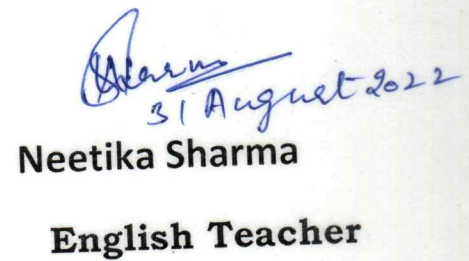 Sharma
31 August 2022
Neetika Sharma
English Teacher